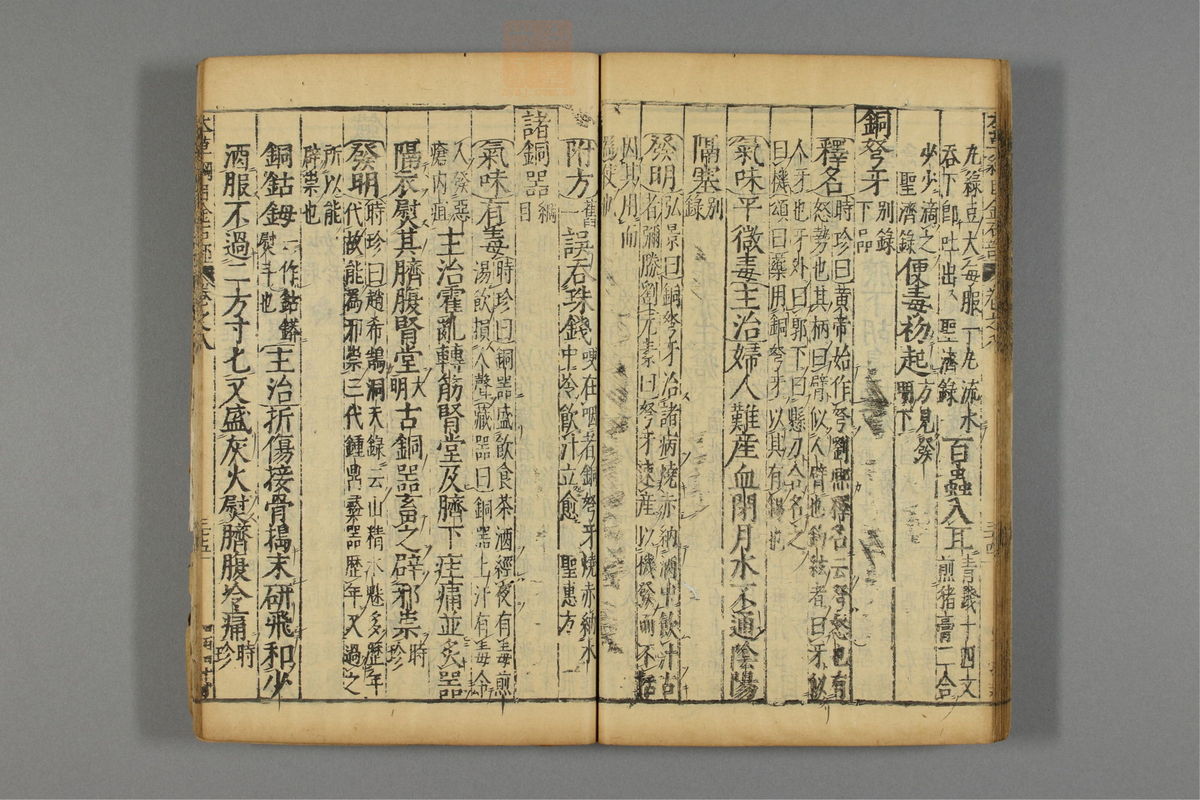 丸綠豆大每服一丸流水
吞下卽吐出聖濟錄
百蟲入耳
青錢十四文
煎猪膏二合
少少滴之
聖濟錄
便毒初起
方見發
明下
銅弩牙
別錄
下品
釋名
時珍曰黃帝始作弩劉熙釋名云弩怒也有
怒勢也其柄曰臂似人臂也鉤絃者曰牙似
人牙也牙外曰郭下曰懸刀合名之
曰機頌曰藥用銅弩牙以其有錫也
氣味平微毒主治婦人難產血閉月水不通陰陽
隔塞
別
錄
發明
弘景曰銅弩牙治諸病燒赤納酒中飲汁古
者彌勝劉完素曰弩牙速產以機發而不括
因其用而
爲使也
附方
舊
一
誤吞珠錢
哽在咽者銅弩牙燒赤納水
中冷飲汁立愈 聖惠方
諸銅器
綱
目
氣味有毒
時珍曰銅器盛飲食茶酒經夜有毒煎
湯飲損人聲藏器曰銅器上汗有毒令
人發惡
瘡內疽
主治霍亂轉筋腎堂及臍下疰痛並炙器
隔衣熨其臍腹腎堂
大
明
古銅器畜之辟邪祟
時
珍
發明
時珍曰趙希鵠洞天錄云山精水魅多歷年
代故能爲邪祟三代鍾鼎彝器歷年又過之
所以能
辟祟也
銅鈷䥈
一作鈷鉧
熨斗也
主治折傷接骨搗末研飛和少
酒服不過二方寸匕又盛灰火熨臍腹冷痛
時
珍